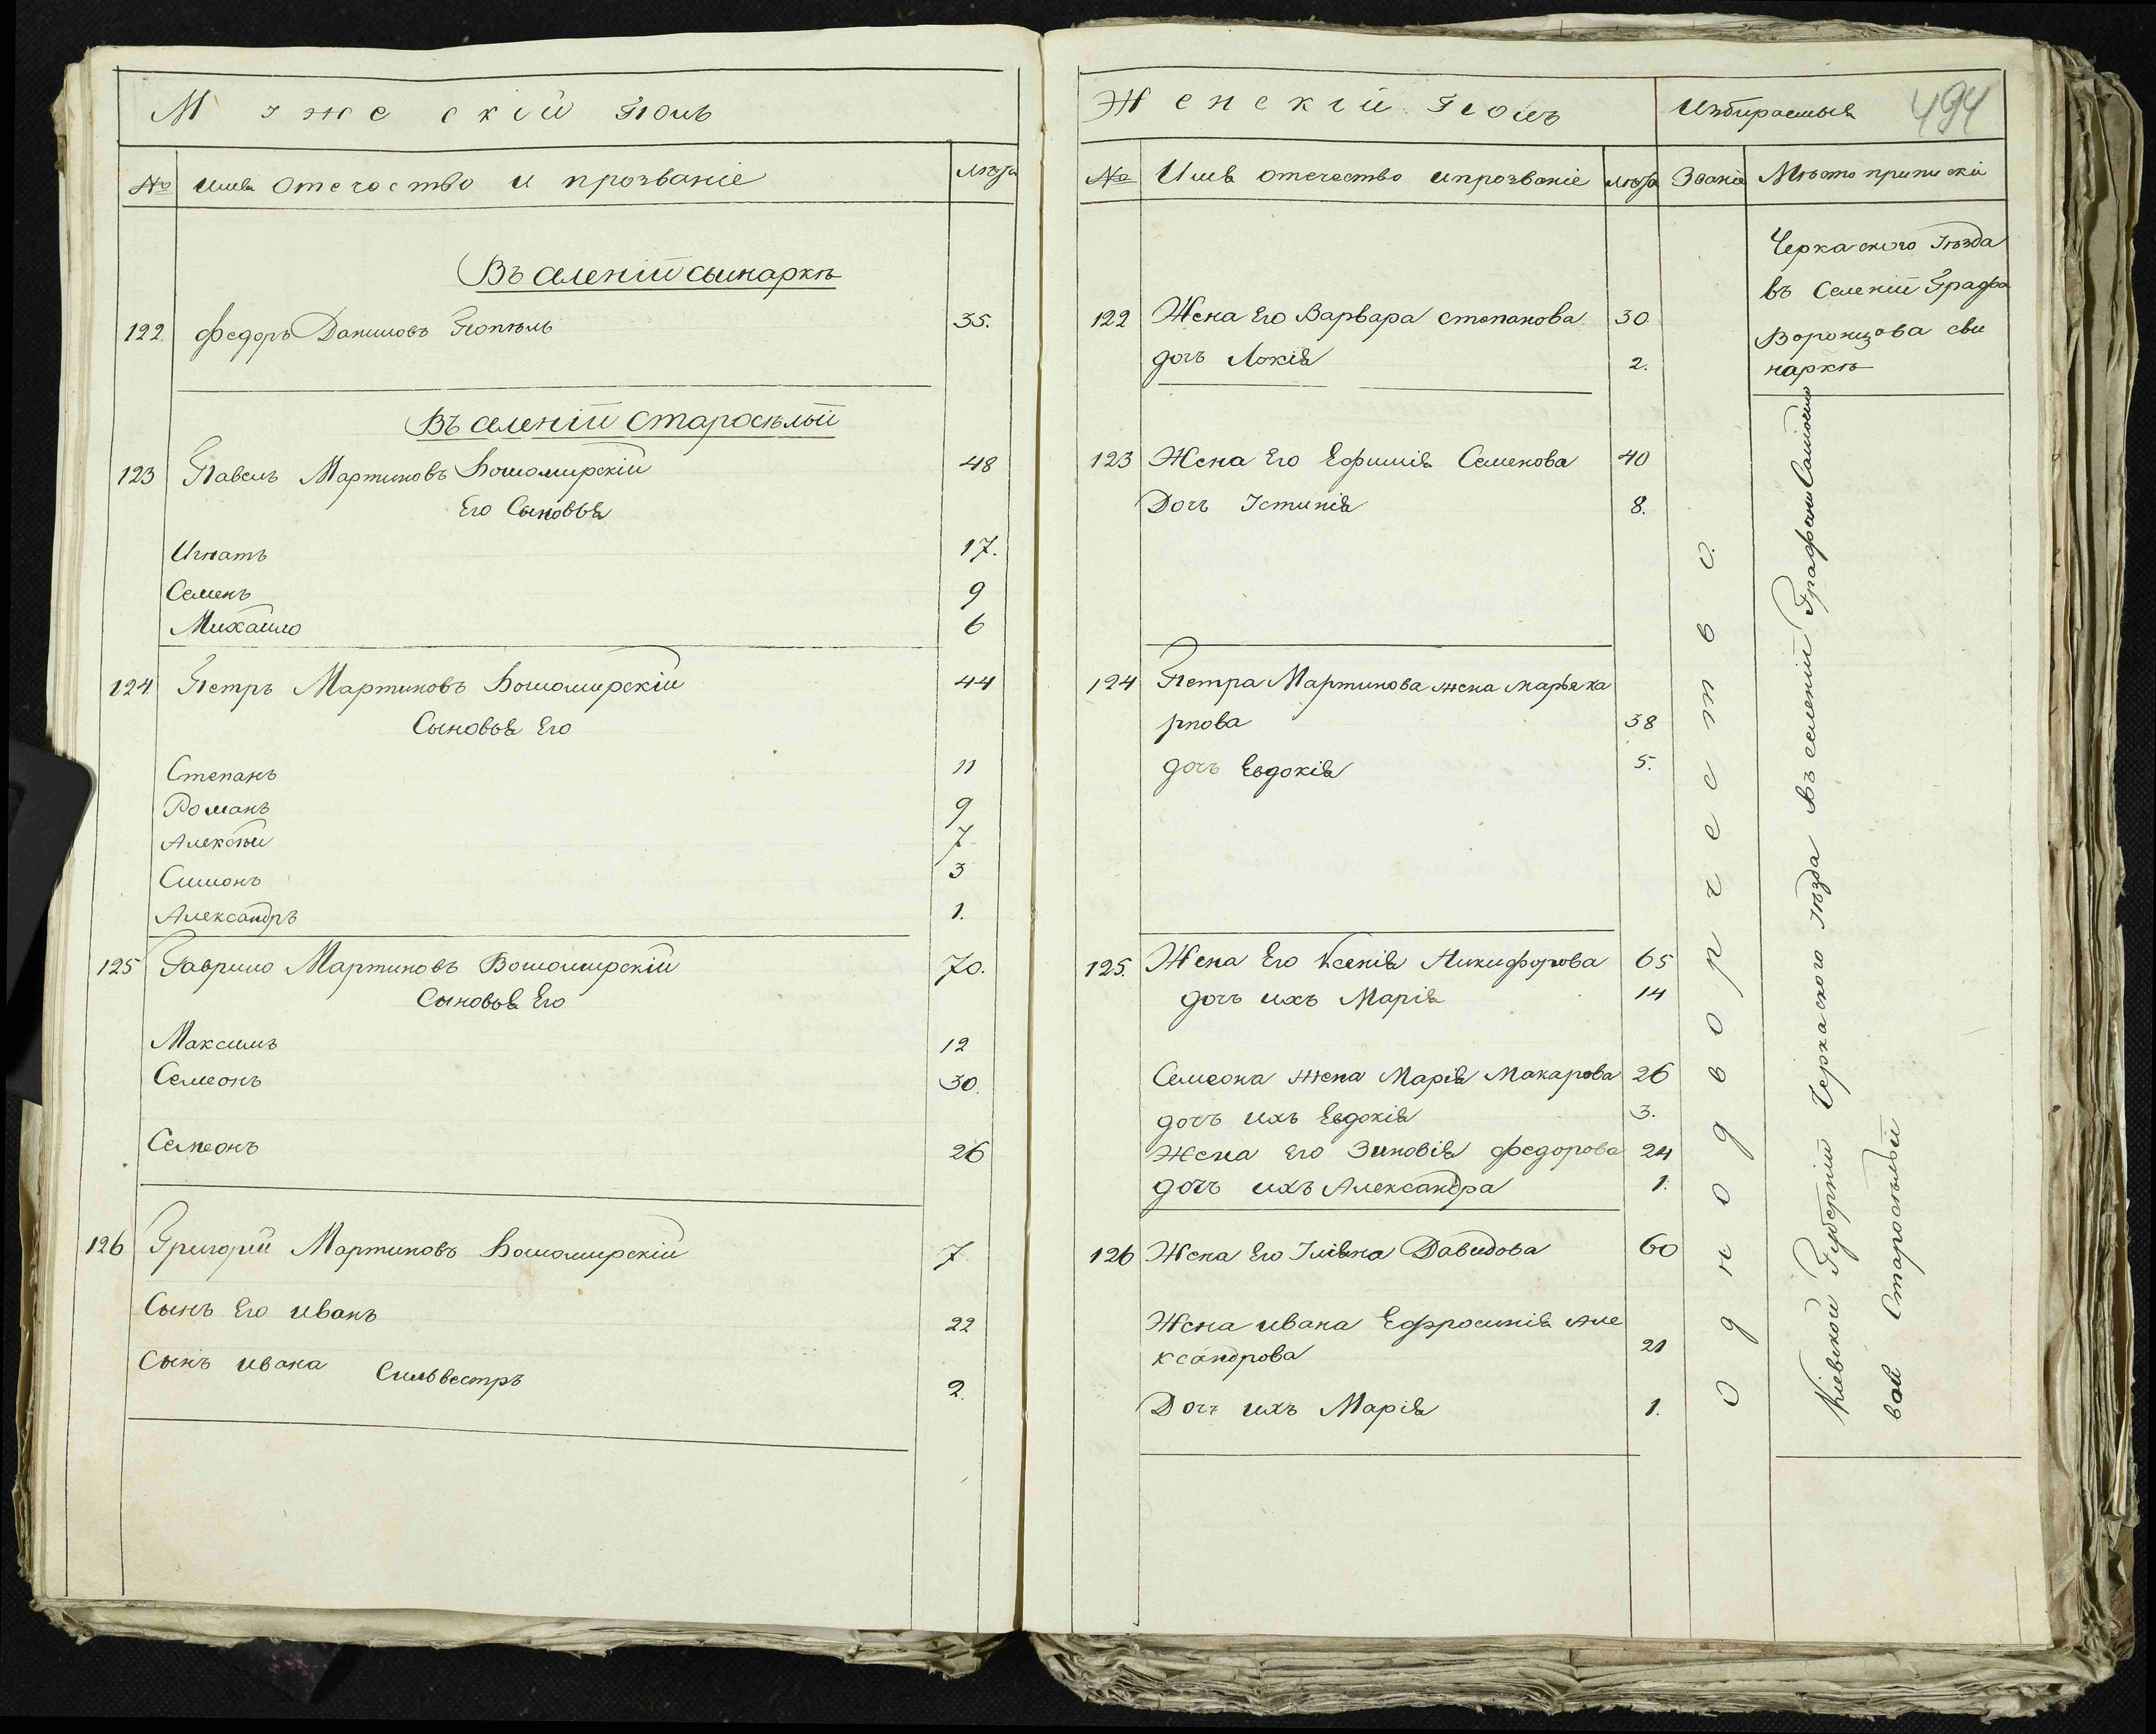 Мужескій Полъ
№ Имя отечество и прозваніе лѣта
Въ селеніи сьинаркѣ
122. Федоръ Даниловъ Гопкѣль 35.
Въ селеніи Старосѣлъй
123 Павелъ Мартиновъ Боиомирскій 48
Его Сыновья
Игнатъ 17.
Семенъ 9
Михайло 6
124 Петръ Мартиновъ Боиомирскій 44
Сыновья Его
Степанъ 11
Романъ 9
Алексѣй 7
Симонъ 3
Александръ 1.
125 Гаврило Мартиновъ Воиомирскій 70.
Сыновья Его
Максимъ 12
Семеонъ 30.
Семеонъ 26
126 Григорій Мартиновъ Боиомирскій 7
Сынъ Его Иванъ 22
Сынъ Ивана Силввестръ 2.
Женскій Полъ Избираемыя 494
№ Имя отечество ипрозваніе лѣта Званіе Мѣсто приписки
122 Жена Его Варвара степанова 30.
дочъ Локія 2.
123 Жена Его Ефимія Семенова 40
Дочъ Істинія 8.
124 Петра Мартинова жена марья ка
рпова 38
дочъ Евдокія 5.
125. Жена Его Ксенія Никифорова 65
дочъ ихъ Марія 14
Семеона жена Марія Макарова 26
дочъ ихъ Евдокія 3.
Жена Его Зиновія Федорова 24
дочъ ихъ Александра 1.
126 Жена Его Іліяна Давидова 60
Жена Ивана Ефросинія Але
ксандрова 21
Дочъ ихъ Марія 1.
Однодворчество.
Черкаского Уѣзда
въ Селеніи Графа
Воронцова сви
наркѣ
Кіевской Губерніи Черкаского Уѣзда въ селеніи Графини Самойло
вой Старосѣлъй